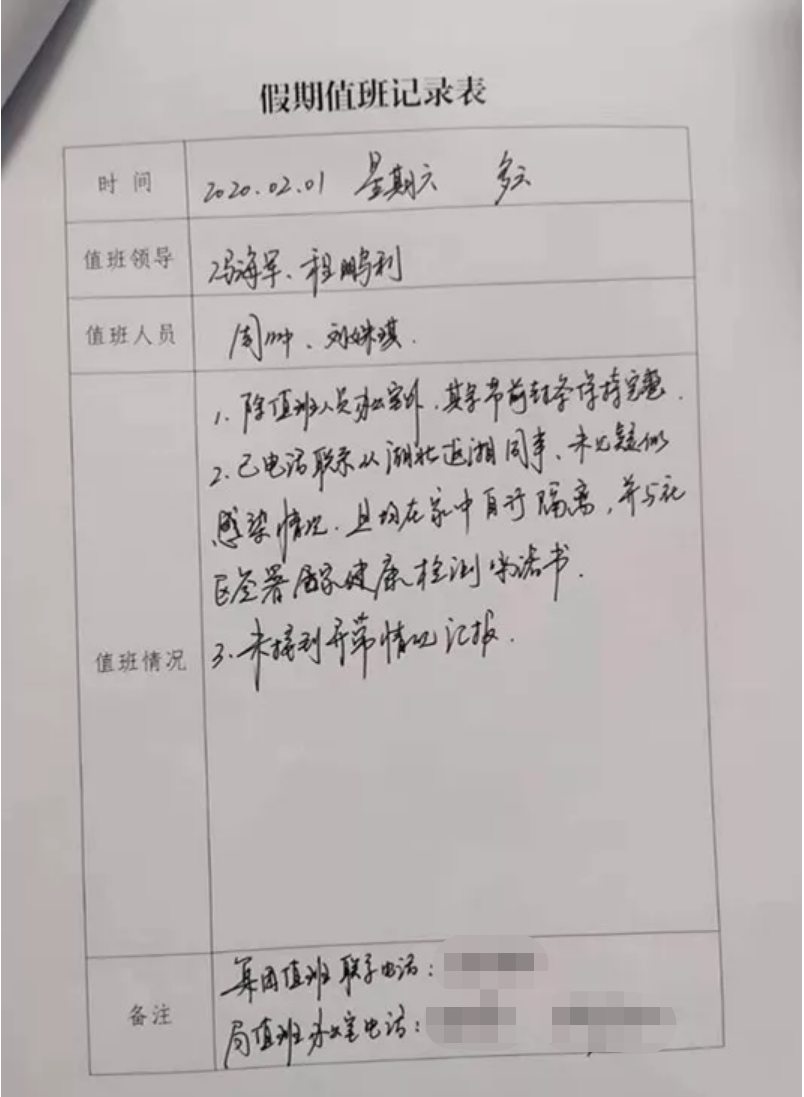 假期值班记录表
时间 2020.02.01 星期六 多云
值班领导 冯海军、程鹏利
值班人员 周帅、刘姝琪.
值班情况
1、除值班人员办公室外,其余节前封条保持完整.
2、已电话联系从湖北返湘同事、未见疑似
感染情况.且均在家中自行隔离,并与社
区签署居家健康检测承诺书.
3、未接到异常情况汇报.
备注
集团值班联系电话:
局值班办公室电话: